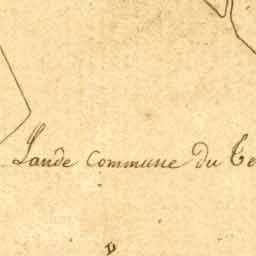 Lande Commune Du Te
v